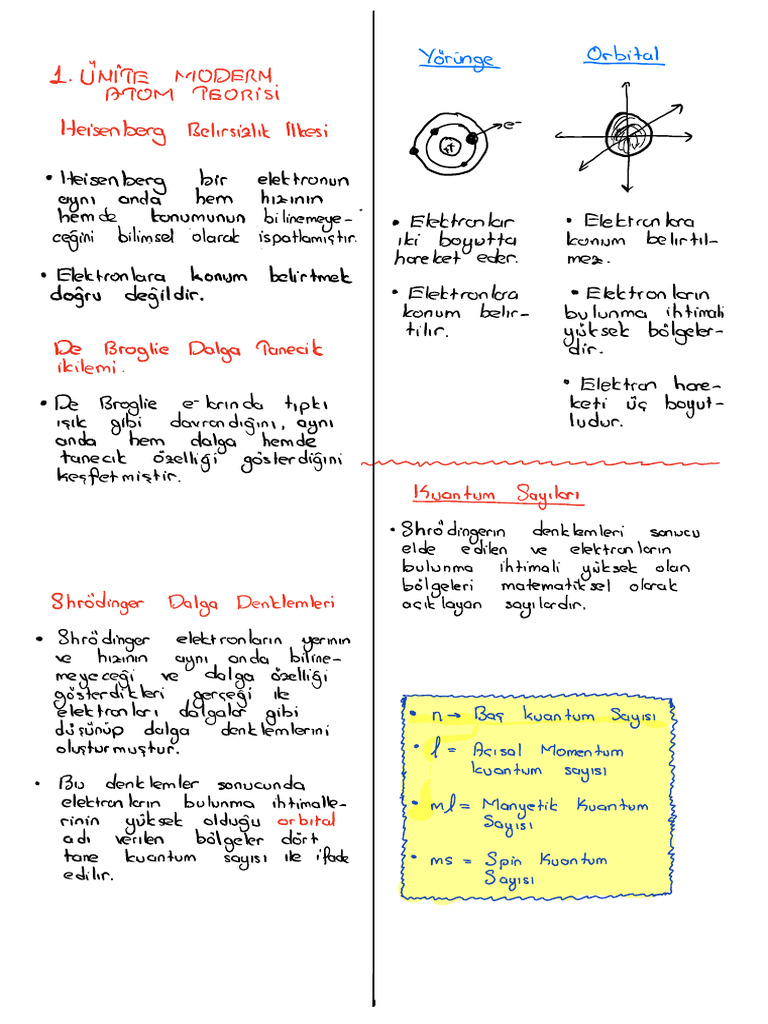 1. ÜNİTE MODERN
ATOM TEORİSİ
Heisenberg Belirsizlik İlkesi
• Heisenberg bir elektronun
aynı anda hem hızının
hemde konumunun bilinemeye-
ceğini bilimsel olarak ispatlamıştır.
• Elektronlara konum belirtmek
doğru değildir.
De Broglie Dalga Tanecik
ikilemi.
• De Broglie e-larında tıpkı
ışık gibi davrandığını, aynı
anda hem dalga hemde
tanecik özelliği gösterdiğini
keşfetmiştir.
Shrödinger Dalga Denklemleri
• Shrödinger elektronların yerinin
ve hızının aynı anda biline-
meyeceği ve dalga özelliği
gösterdikleri gerçeği ile
elektronları dalgalar gibi
düşünüp dalga denklemlerini
oluşturmuştur.
• Bu denklemler sonucunda
elektronların bulunma ihtimalle-
rinin yüksek olduğu orbital
adı verilen bölgeler dört
tane kuantum sayısı ile ifade
edilir.
Yörünge
e-
+
• Elektronlar
iki boyutta
hareket eder.
• Elektronlara
konum belir-
tilir.
Orbital
• Elektronlara
konum belirtil-
mez.
• Elektronların
bulunma ihtimali
yüksek bölgeler-
dir.
• Elektron hare-
keti üç boyut-
ludur.
Kuantum Sayıları
• Shrödingerin denklemleri sonucu
elde edilen ve elektronların
bulunma ihtimali yüksek olan
bölgeleri matematiksel olarak
açıklayan sayılardır.
• n → Baş kuantum Sayısı
• l = Açısal Momentum
kuantum sayısı
• ml = Manyetik Kuantum
Sayısı
• ms = Spin Kuantum
Sayısı